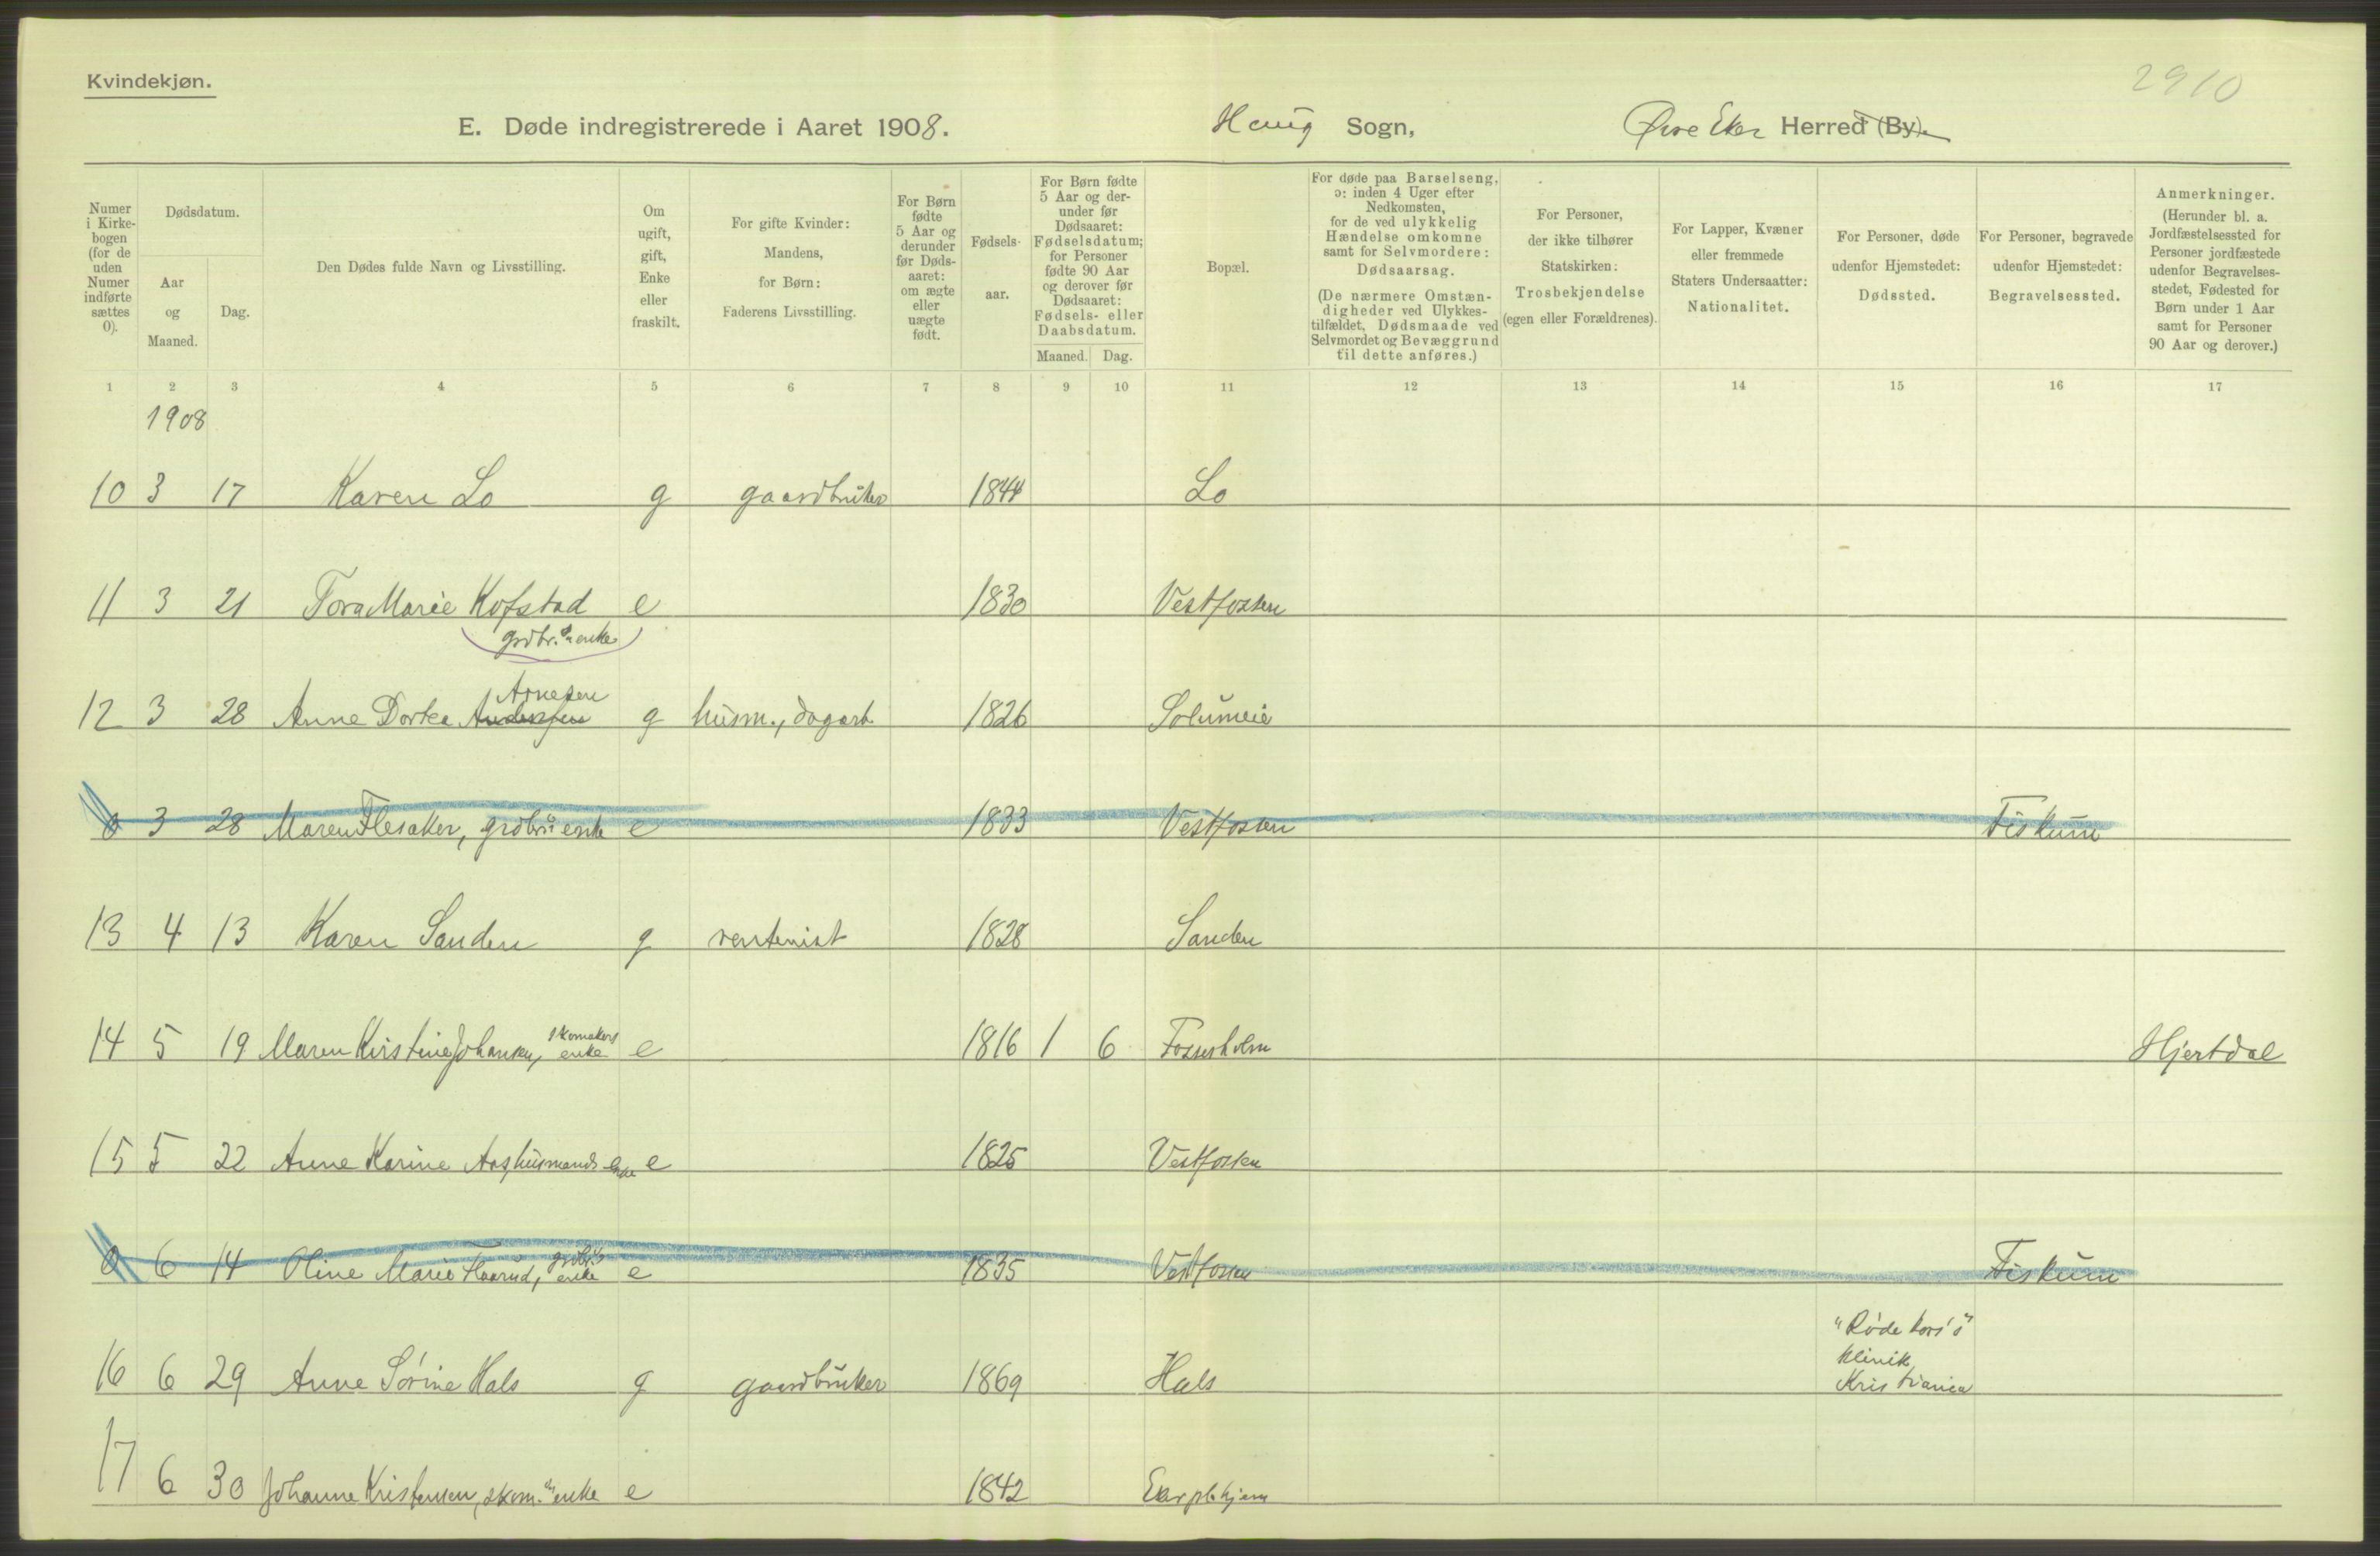 Kvindekjøn.
2910
E. Døde indregistrerede i Aaret 1908. Haug Sogn, Øvre Eker Herred (By).
Numer i Kirke-bogen (for de uden Numer indførte sættes 0).
Dødsdatum.
Aar og Maaned.
Dag.
Den Dødes fulde Navn og Livsstilling.
Om ugift, gift, Enke eller fraskilt.
For gifte Kvinder: Mandens, for Børn: Faderens Livsstilling.
For Børn fødte 5 Aar og derunder før Døds-aaret: om ægte eller uægte født.
Fødsels-aar.
For Børn fødte 5 Aar og der-under før Dødsaaret: Fødselsdatum; for Personer fødte 90 Aar og derover før Dødsaaret: Fødsels- eller Daabsdatum.
Maaned. Dag.
Bopæl.
For døde paa Barselseng, ɔ: inden 4 Uger efter Nedkomsten, for de ved ulykkelig Hændelse omkomne samt for Selvmordere: Dødsaarsag. (De nærmere Omstæn-digheder ved Ulykkes-tilfældet, Dødsmaade ved Selvmordet og Bevæggrund til dette anføres.)
For Personer, der ikke tilhører Statskirken: Trosbekjendelse (egen eller Forældrenes).
For Lapper, Kvæner eller fremmede Staters Undersaatter: Nationalitet.
For Personer, døde udenfor Hjemstedet: Dødssted.
For Personer, begravede udenfor Hjemstedet: Begravelsessted.
Anmerkninger. (Herunder bl. a. Jordfæstelsessted for Personer jordfæstede udenfor Begravelses-stedet, Fødested for Børn under 1 Aar samt for Personer 90 Aar og derover.)
1 2 3 4 5 6 7 8 9 10 11 12 13 14 15 16 17
1908
10 3 17 Karen Lo g gaardbruker 1844 Lo
11 3 21 Tora Marie Kofstad e 1830 Vestfossen
grdbr.s enke
Arnesen
12 3 28 Anne Dortea Andersen g husm., dagarb. 1826 Solumeie
0 3 28 Maren Flesaker, grdbr.s enke e 1833 Vestfossen Fiskum
13 4 13 Karen Sanden g rentenist 1828 Sanden
14 5 19 Maren Kristine Johansen, skomakers enke e 1816 1 6 Fossesholm Hjertdal
15 5 22 Anne Karine Aas, husmands enke e 1825 Vestfossen
0 6 14 Oline Marie Flaarud, grdbr.s enke e 1835 Vestfossen Fiskum
"Røde kors's"
klinik
16 6 29 Anne Sørine Hals g gaardbruker 1869 Hals Kristiania
17 6 30 Johanne Kristensen, skom.s enke e 1842 Eker plehjem